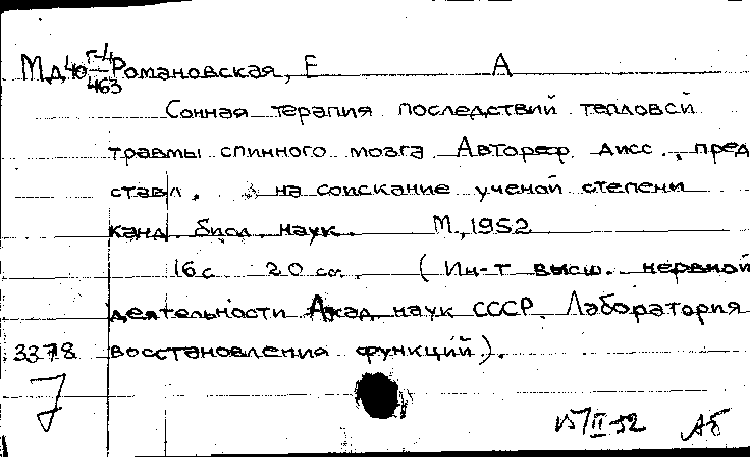 Мд40 Г-4/463 Романовская, Е А
Сонная терапия последствий тепловой
травмы спинного мозга Автореф дисс., пред
ставл. на соискание ученой степени
канд. биол. наук. М., 1952
16 с 20 см. (Ин-т высш. нервной
деятельности Акад. наук СССР. Лаборатория
3378 восстановления функций).
7
II-52 Аб